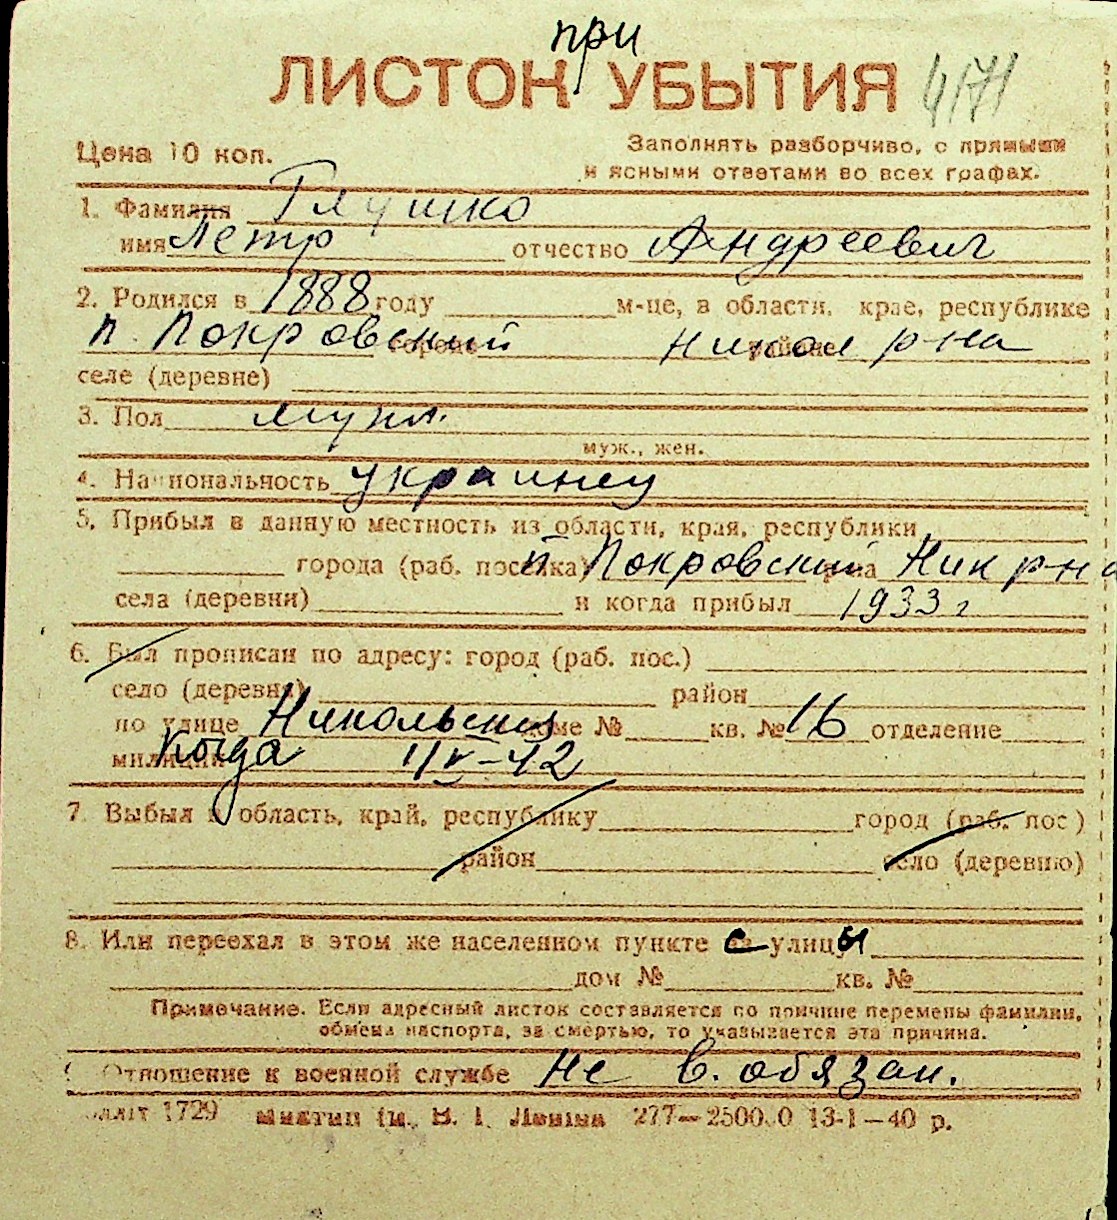 при
ЛИСТОК УБЫТИЯ 4171
Цена 10 коп. Заполнять разборчиво, с прямыми
и ясными ответами во всех графах.
1. Фамилия Глушко
имя Петр отчество Андреевич
2. Родился в 1888 году м-це, в области, крае, республике
п. Покровский городе Никол р-на районе
селе (деревне)
3. Пол муж.
муж., жен.
4. Национальность украинец
5. Прибыл в данную местность из области, края, республики
города (раб. поселка) п. Покровский р-на Ник р-на
села (деревни) и когда прибыл 1933 г
6. Был прописан по адресу: город (раб. пос.)
село (деревня) район
по улице Никольская доме № кв. № 16 отделение
милиции когда 1/V-42
7. Выбыл в область, край, республику город (раб. пос)
район село (деревню)
8. Или переехал в этом же населенном пункте с улицы
дом № кв. №
Примечание. Если адресный листок составляется по причине перемены фамилии,
обмена паспорта, за смертью, то указывается эта причина.
Отношение к военной службе не в. обязан.
1729 им. В. І. Леніна 277— 13-1—40 р.